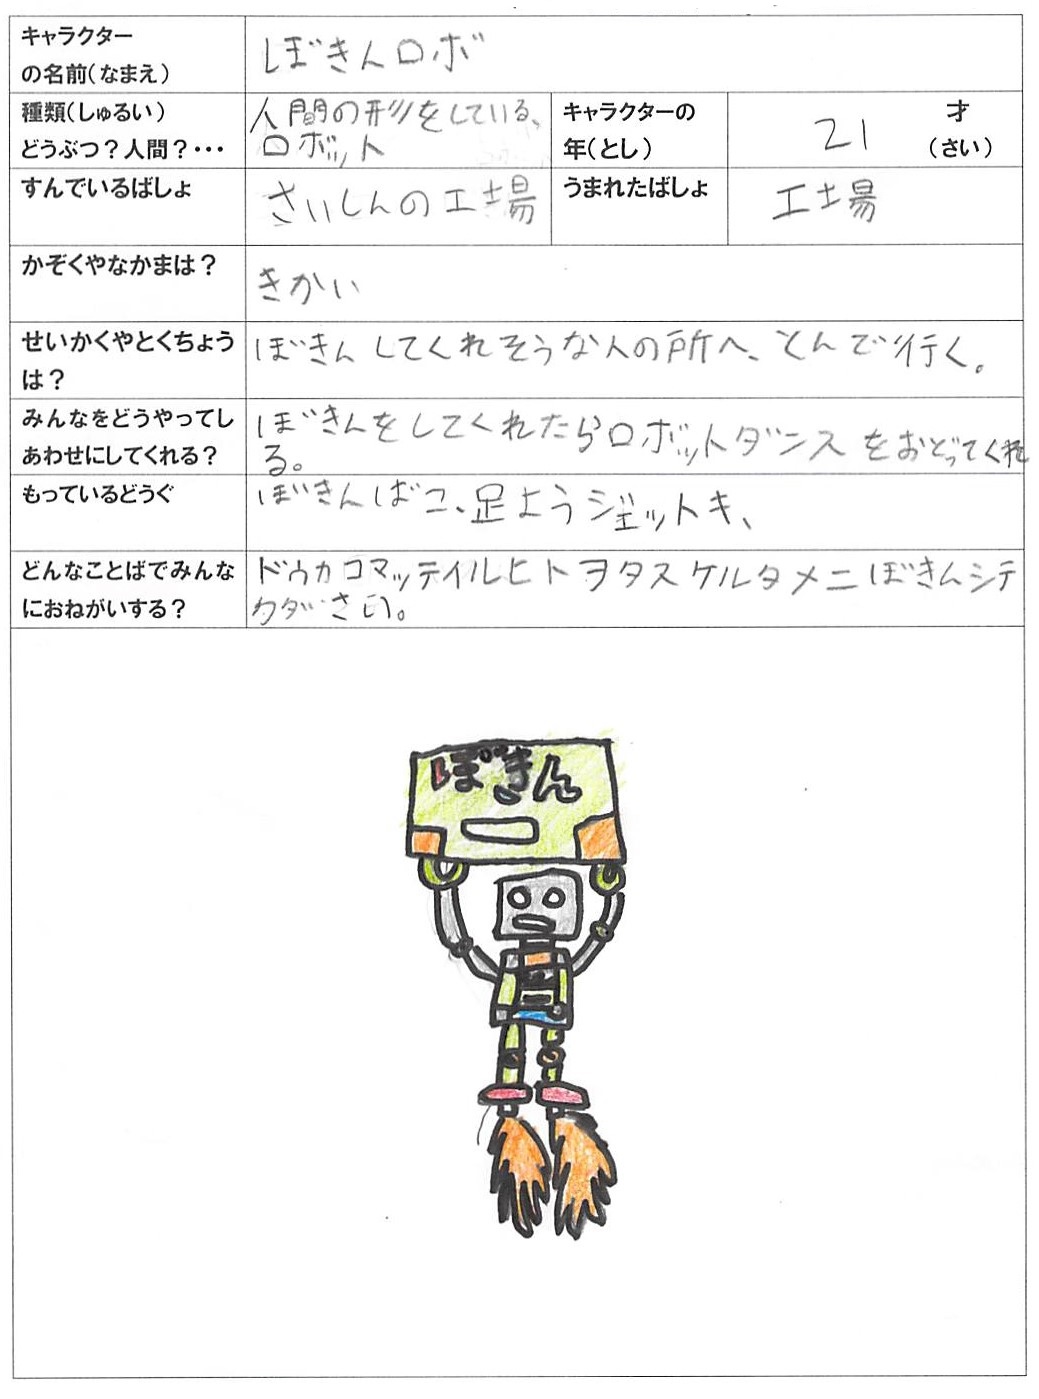 キャラクター
の名前(なまえ)
ぼきんロボ
種類(しゅるい)
どうぶつ?人間?・・・
人間の形をしている、
ロボット
キャラクターの
年(とし)
21
才
(さい)
すんでいるばしょ
さいしんの工場
うまれたばしょ
工場
かぞくやなかまは?
きかい
せいかくやとくちょう
は?
ぼきんしてくれそうな人の所へ、とんで行く。
みんなをどうやってし
あわせにしてくれる?
ぼきんをしてくれたらロボットダンスをおどってくれ
る。
もっているどうぐ
ぼきんばこ、足ようジェットキ、
どんなことばでみんな
におねがいする?
ドウカコマッテイルヒトヲタスケルタメニぼきんシテ
クダさい。
ぼきん